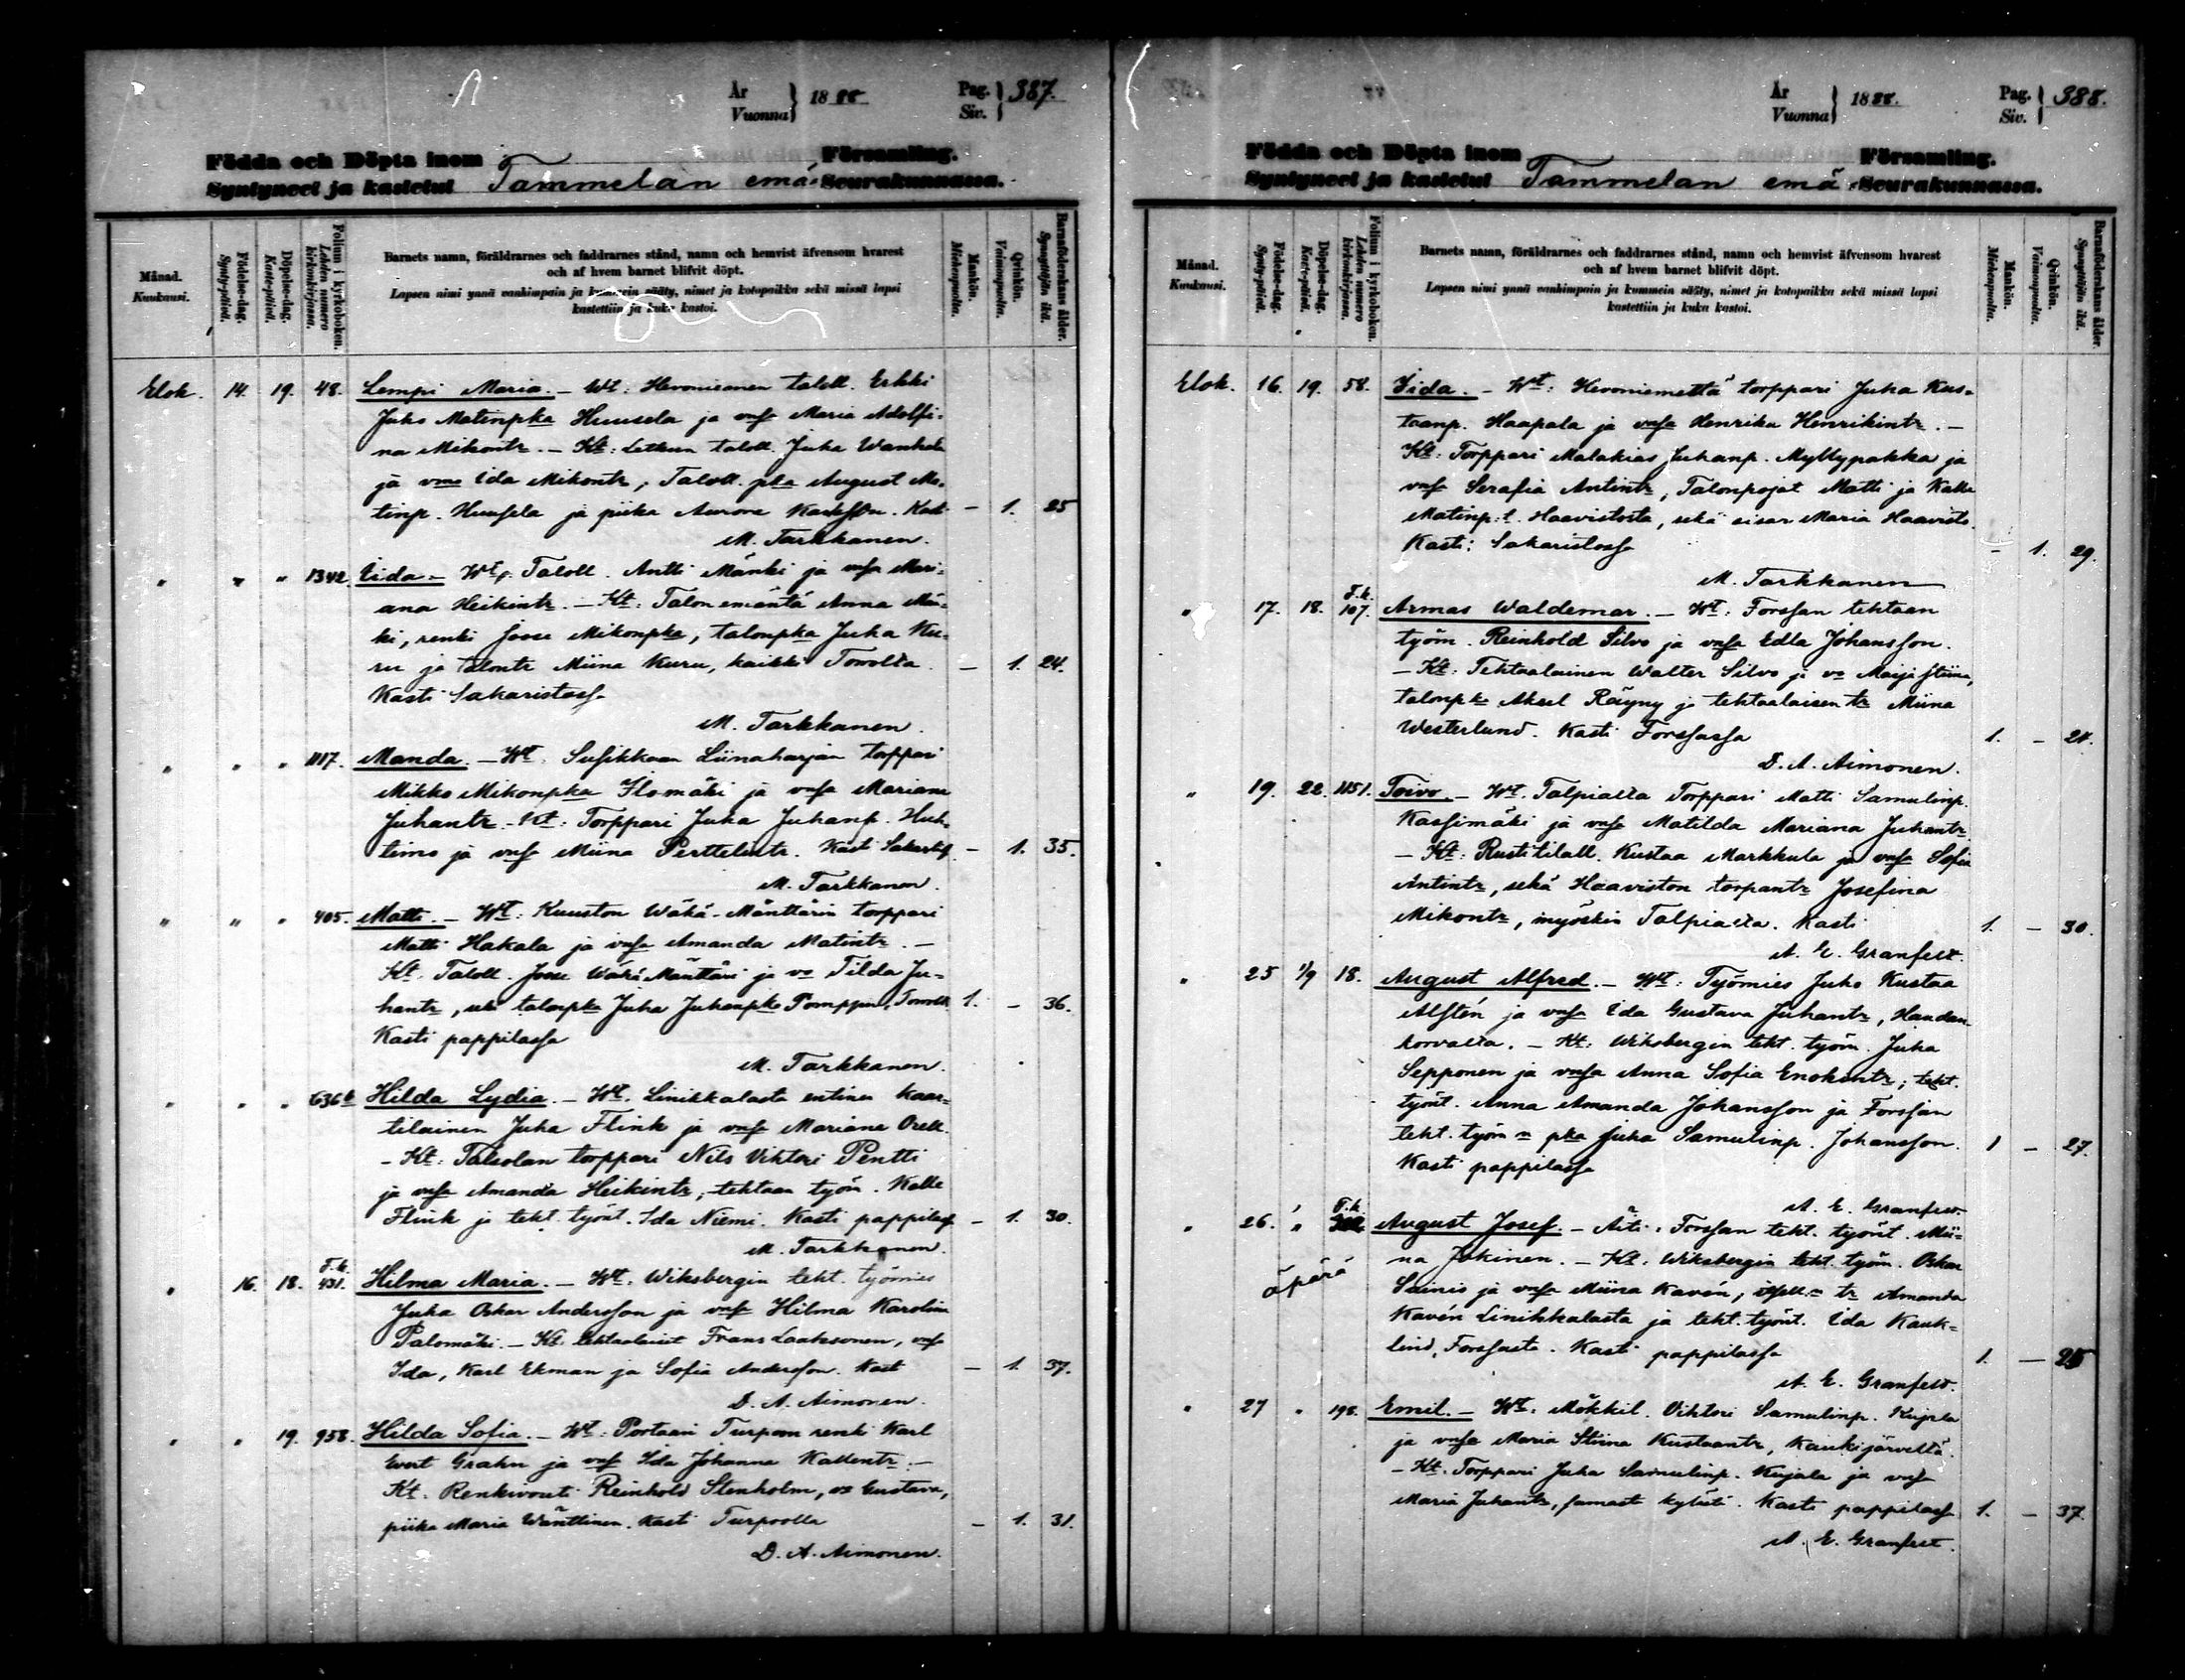 År
Vuonna } 1888
Pag.
Siv. } 387.
Födda och Döpta inom Församling.
Syntyneet ja kastetut Tammelan emä- Seurakunnassa.
Månad.
Kuukausi.
Födelse-dag.
Synty-päivä.
Döpelse-dag.
Kaste-päivä.
Folium i kyrkoboken.
Lehden numero kirkonkirjassa.
Barnets namn, föräldrarnes och faddrarnes stånd, namn och hemvist äfvensom hvarest
och af hvem barnet blifvit döpt.
Lapsen nimi ynnä vanhimpain ja kummein sääty, nimet ja kotopaikka sekä missä lapsi
kastettiin ja kuka kastoi.
Mankön.
Miehenpuolta.
Qvinkön.
Vaimonpuolta.
Barnaföderskans ålder.
Synnyttäjän ikä.
Elok. 14. 19. 48. Lempi Maria. — Wt: taloll. Erkki
Juho Matinpka Huusela ja vmsa Maria Adolfi-
na Mikontr. — Kt: Letkun taloll. Juha Wanhala
ja vmo Ida Mikontr, Taloll. pka August Ma-
tinp. Huusela ja piika Aurora Kast. — 1. 25
M. Tarkkanen.
" " " 1342. Iida — Wt: Taloll. Antti Mänki ja vmsa Mari-
ana Heikintr. — Kt: Talon emäntä Anna Män-
ki, renki Joose Mikonpka, talonpka Juha Ku-
ru ja talontr Miina Kuru, kaikki Torrolta. — 1. 24.
Kasti Sakaristossa
M. Tarkkanen.
" " " 1117. Manda. — Wt: Susikkaan Liinaharjan torppari
Mikko Mikonpka Ilomäki ja vmsa Mariana
Juhantr. — Kt: Torppari Juha Juhanp. Huh-
timo ja vmsa Miina Perttelintr. Kasti — 1. 35.
M. Tarkkanen.
" " " 405. Matti. — Wt: Kuuston Wähä-Mänttärin torppari
Matti Hakala ja vmsa Amanda Matintr. —
Kt: Taloll. Joose Wähä Mänttäri ja vo Tilda Ju-
hantr, talonpka Juha Juhanpka Pomppu, 1. — 36.
Kasti pappilassa
M. Tarkkanen.
" " " 636b Hilda Lydia. — Wt: Linikkalasta entinen kaar-
tilainen Juha Flink ja vmsa Mariana Orell.
— Kt: Talsolan torppari Nils Viktori Pentti
ja vmsa Amanda Heikintr, tehtaan työm. Kalle
Flink ja teht. työnt. Ida Niemi. Kasti pappilass. — 1. 30.
M. Tarkkanen.
" 16. 18. T.k. 431. Hilma Maria. — Wt: Wiksbergin teht. työmies
Juha Oskar Andersson ja vmsa Hilma Karolina
Palomäki. — Kt: tehtaalaiset Frans Laaksonen, vmsa
Ida, Karl Ekman ja Sofia Andersson. Kast — 1. 37.
D. A. Aimonen.
" " 19. 958. Hilda Sofia. — Wt: Portaan Turpoon renki Karl
Evert Grahn ja vmsa Ida Johanna Kallentr. —
Kt. Renkivouti Reinhold Stenholm, vo Gustava,
piika Maria Wänttinen. Kasti Turpoolla — 1. 31.
D. A. Aimonen.
År
Vuonna } 1888.
Pag.
Siv. } 388.
Födda och Döpta inom Församling.
Syntyneet ja kastetut Tammelan emä- Seurakunnassa.
Månad.
Kuukausi.
Födelse-dag.
Synty-päivä.
Döpelse-dag.
Kaste-päivä.
Folium i kyrkoboken.
Lehden numero kirkonkirjassa.
Barnets namn, föräldrarnes och faddrarnes stånd, namn och hemvist äfvensom hvarest
och af hvem barnet blifvit döpt.
Lapsen nimi ynnä vanhimpain ja kummein sääty, nimet ja kotopaikka sekä missä lapsi
kastettiin ja kuka kastoi.
Mankön.
Miehenpuolta.
Qvinkön.
Vaimonpuolta.
Barnaföderskans ålder.
Synnyttäjän ikä.
Elok. 16. 19. 58. Iida. — Wt: Hevoniemeltä torppari Juha Kus-
taanp. Haapala ja vmsa Henrika Henrikintr. —
Kt: Torppari Malakias Juhanp. Myllypakka ja
vmsa Serafia Antintr, Talonpojat Matti ja Kalle
Matinp:t Haavistosta, sekä sisar Maria Haavisto.
Kasti: Sakaristossa — 1. 29.
M. Tarkkanen
" 17. 18. T.k. 107. Armas Waldemar. — Wt: Forssan tehtaan
työm. Reinhold Silvo ja vmsa Edla Johansson.
— Kt: Tehtaalainen Walter Silvo ja vo Maija Stiina,
talonpka Aksel Räyny ja tehtaalaisen tr Miina
Westerlund. Kasti Forssassa 1. — 21.
D. A. Aimonen.
" 19. 22. 1151. Toivo. — Wt: Talpialta Torppari Matti Samulinp.
Kassimäki ja vmsa Matilda Mariana Juhantr
— Kt: Rustitilall. Kustaa Markkula ja vmsa Sofia
Antintr, sekä Haaviston torpantr Josefina
Mikontr, myöskin Talpialta. Kasti 1. — 30.
A. E. Granfelt.
" 25 1/9 18. August Alfred. — Wt: Työmies Juho Kustaa
Alstén ja vmsa Ida Gustava Juhantr, Haudan-
korvalta. — Kt: Wiksbergin teht. työm. Juha
Sepponen ja vmsa Anna Sofia Enokintr; teht.
työnt. Anna Amanda Johansson ja Forssan
teht. työm:n pka Juha Samulinp. Johansson. 1 — 27.
Kasti pappilassa
A. E. Granfelt.
" 26. " T.k. August Josef. — Äiti: Forssan teht. työnt. Mii-
na Jokinen. — Kt: Wiksbergin teht. työm. Oskar
äpärä
Sainio ja vmsa Miina Kavén; itsell:n tr Amanda
Kavén Linikkalasta ja teht. työnt. Ida Kauk-
lind, Forssasta. Kasti pappilassa 1. — 25
A. E. Granfelt.
" 27 " 198. Emil. — Wt: Mökkil. Viktori Samulinp. Kujala
ja vmsa Maria Stiina Kustaantr, Kaukijärveltä.
— Kt: Torppari Juha Samulinp. Kujala ja vmsa
Maria Juhantr, samasta kylästä. Kasti pappilassa 1. — 37.
A. E. Granfelt.